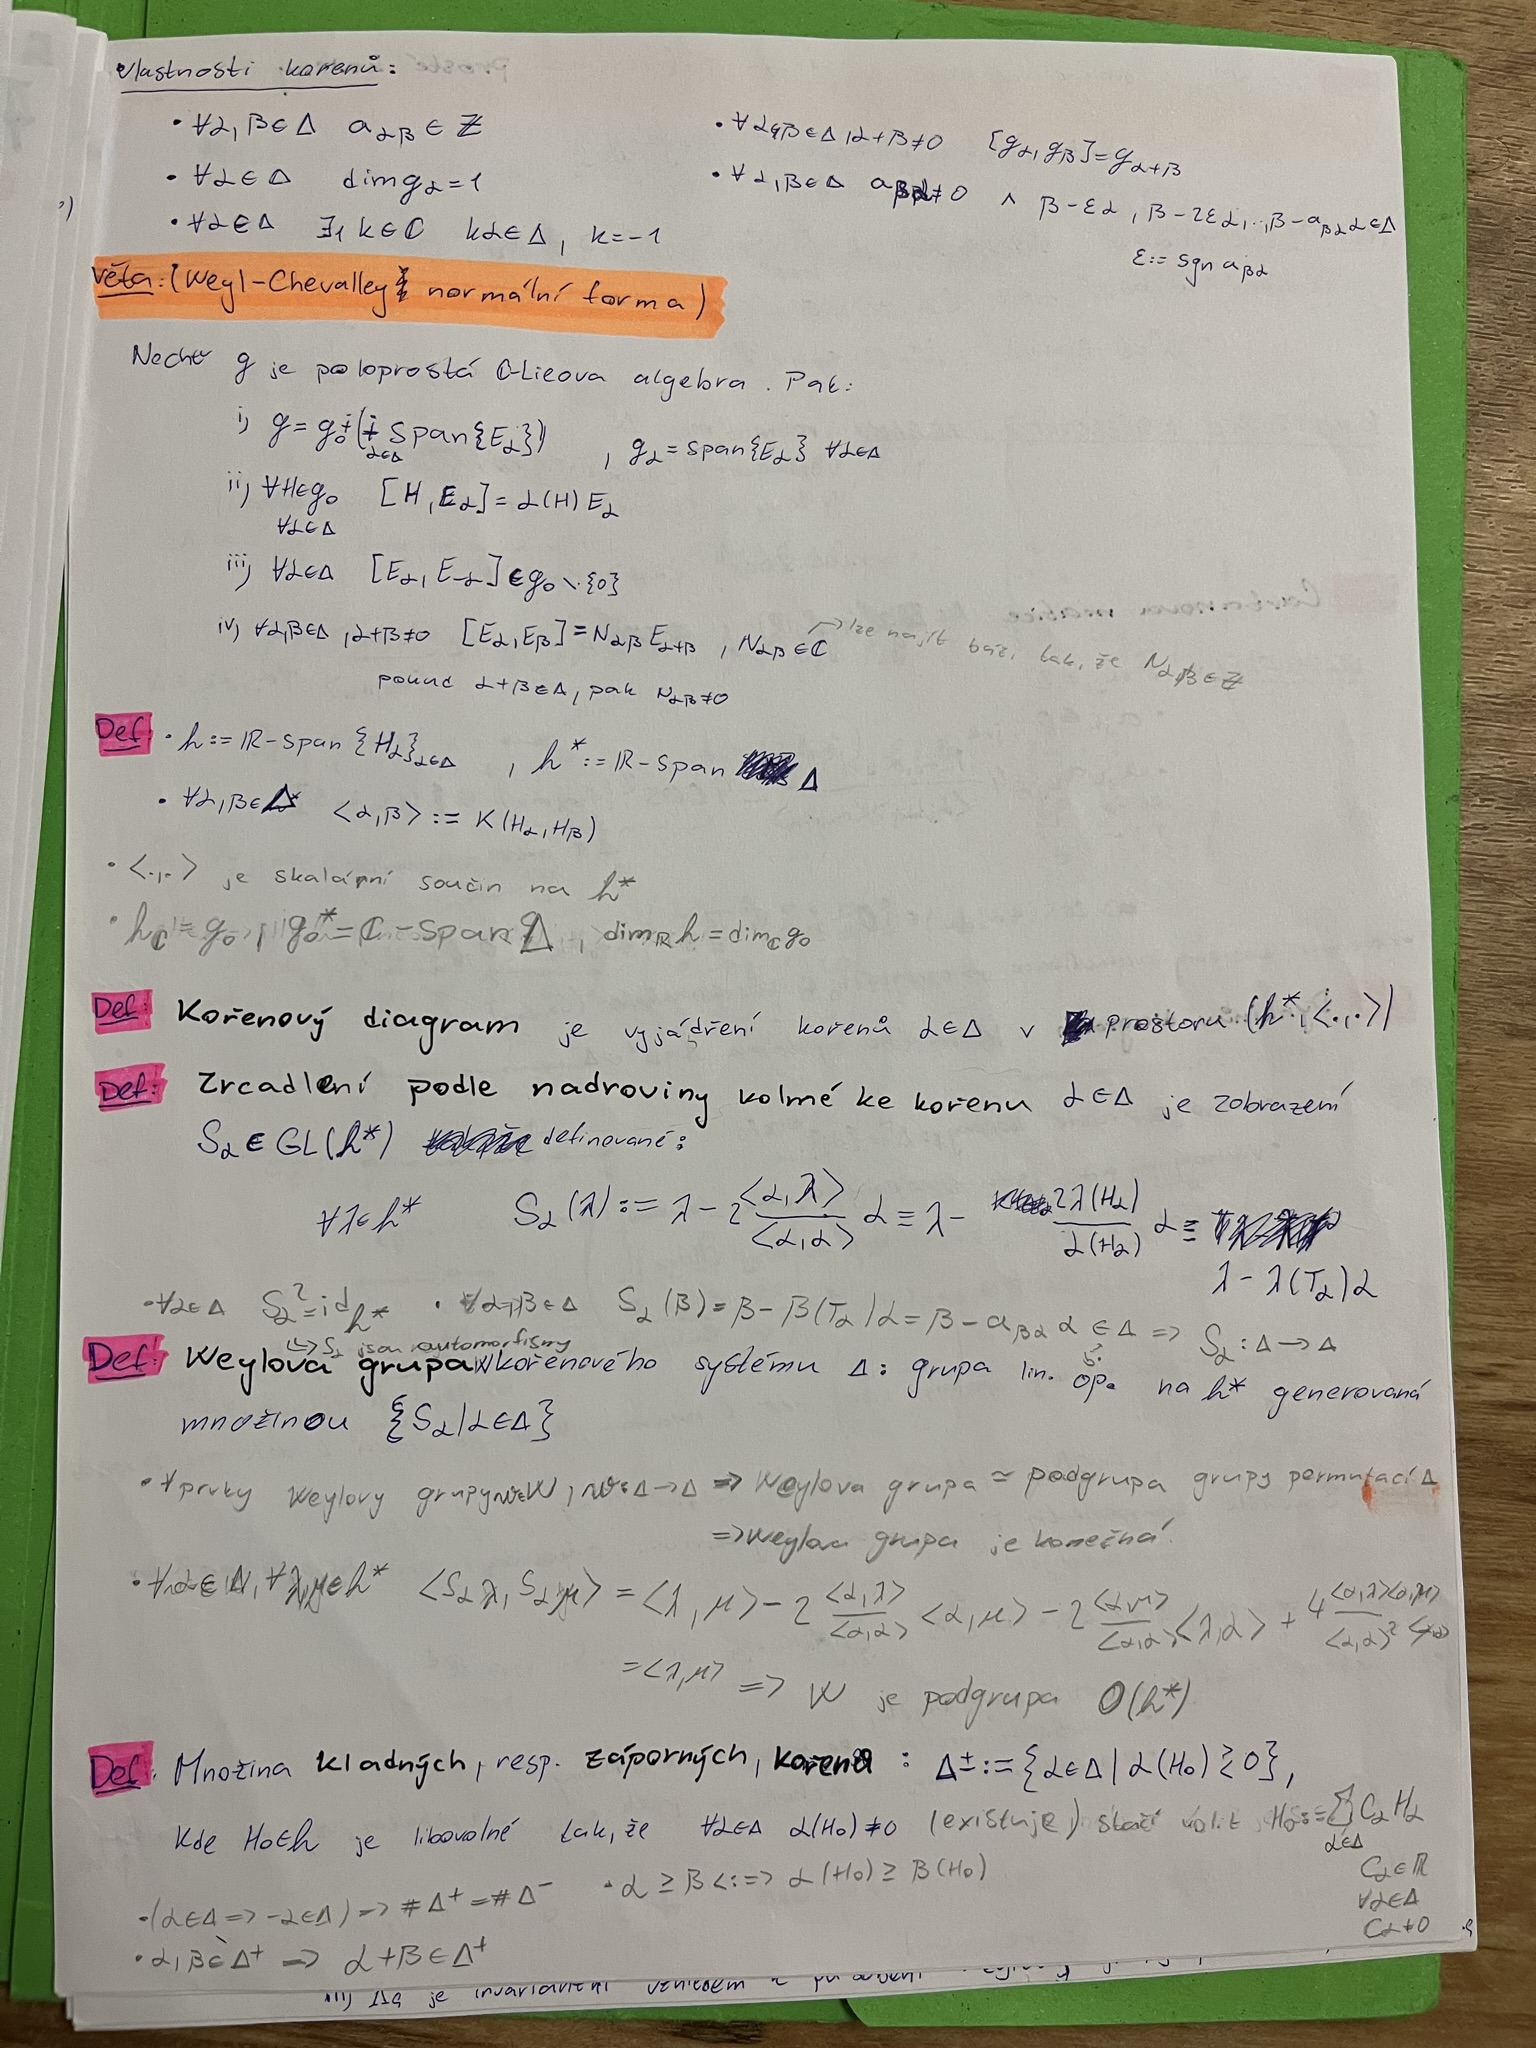 Vlastnosti kořenů:
• ∀α,β∈Δ a_αβ ∈ ℤ
• ∀α∈Δ dim g_α = 1
• ∀α∈Δ ∃₁ k∈ℂ kα∈Δ, k=-1
• ∀α,β∈Δ, α+β≠0 [g_α, g_β] = g_α+β
• ∀α,β∈Δ a_βα≠0 ∧ β-εα, β-2εα,..,β-a_βα α∈Δ
ε:= sgn a_βα
Věta: (Weyl-Chevalley normální forma)
Nechť g je poloprostá ℂ-Lieova algebra. Pak:
i) g = g₀ ∔ (∔_α∈Δ Span{E_α}) , g_α = span{E_α} ∀α∈Δ
ii) ∀H∈g₀ [H, E_α] = α(H) E_α
∀α∈Δ
iii) ∀α∈Δ [E_α, E_-α] ∈ g₀ \ {0}
iv) ∀α,β∈Δ, α+β≠0 [E_α, E_β] = N_αβ E_α+β , N_αβ ∈ ℂ → lze najít bázi tak, že N_αβ ∈ ℤ
pokud α+β∈Δ, pak N_αβ≠0
Def: • h:= ℝ-span{H_α}_α∈Δ , h*:= ℝ-span Δ
• ∀α,β∈Δ <α,β> := K(H_α, H_β)
• <.,.> je skalární součin na h*
• h_ℂ = g₀, g₀* = ℂ-span Δ, dim_ℝ h = dim_ℂ g₀
Def: Kořenový diagram je vyjádření kořenů α∈Δ v prostoru (h*, <.,.>)
Def: Zrcadlení podle nadroviny kolmé ke kořenu α∈Δ je zobrazení
S_α ∈ GL(h*) definované:
∀λ∈h* S_α(λ) := λ - 2 <α,λ>/<α,α> α ≡ λ - 2λ(H_α)/α(H_α) α ≡
λ - λ(T_α)α
• ∀α∈Δ S_α² = id_h* • ∀α,β∈Δ S_α(β) = β - β(T_α)α = β - a_βα α ∈ Δ => S_α: Δ → Δ
↳ S_α jsou automorfismy
Def: Weylova grupa W kořenového systému Δ: grupa lin. op. na h* generovaná
množinou {S_α | α∈Δ}
• ∀ prvky Weylovy grupy w∈W, w: Δ→Δ => Weylova grupa ≃ podgrupa grupy permutací Δ
=> Weylova grupa je konečná
• ∀α∈Δ, ∀λ,μ∈h* <S_α λ, S_α μ> = <λ,μ> - 2 <α,λ>/<α,α> <α,μ> - 2 <α,μ>/<α,α> <λ,α> + 4 <α,λ><α,μ>/<α,α>² <α,α>
= <λ,μ> => W je podgrupa O(h*)
Def: Množina kladných, resp. záporných, kořenů : Δ^± := {α∈Δ | α(H₀) ≷ 0},
kde H₀∈h je libovolné tak, že ∀α∈Δ α(H₀)≠0 (existuje) stačí volit H₀:= ∑_α∈Δ C_α H_α
C_α∈ℝ
∀α∈Δ
C_α≠0
• (α∈Δ => -α∈Δ) => #Δ⁺ = #Δ⁻ • α ≥ β <:=> α(H₀) ≥ β(H₀)
• α,β∈Δ⁺ => α+β∈Δ⁺